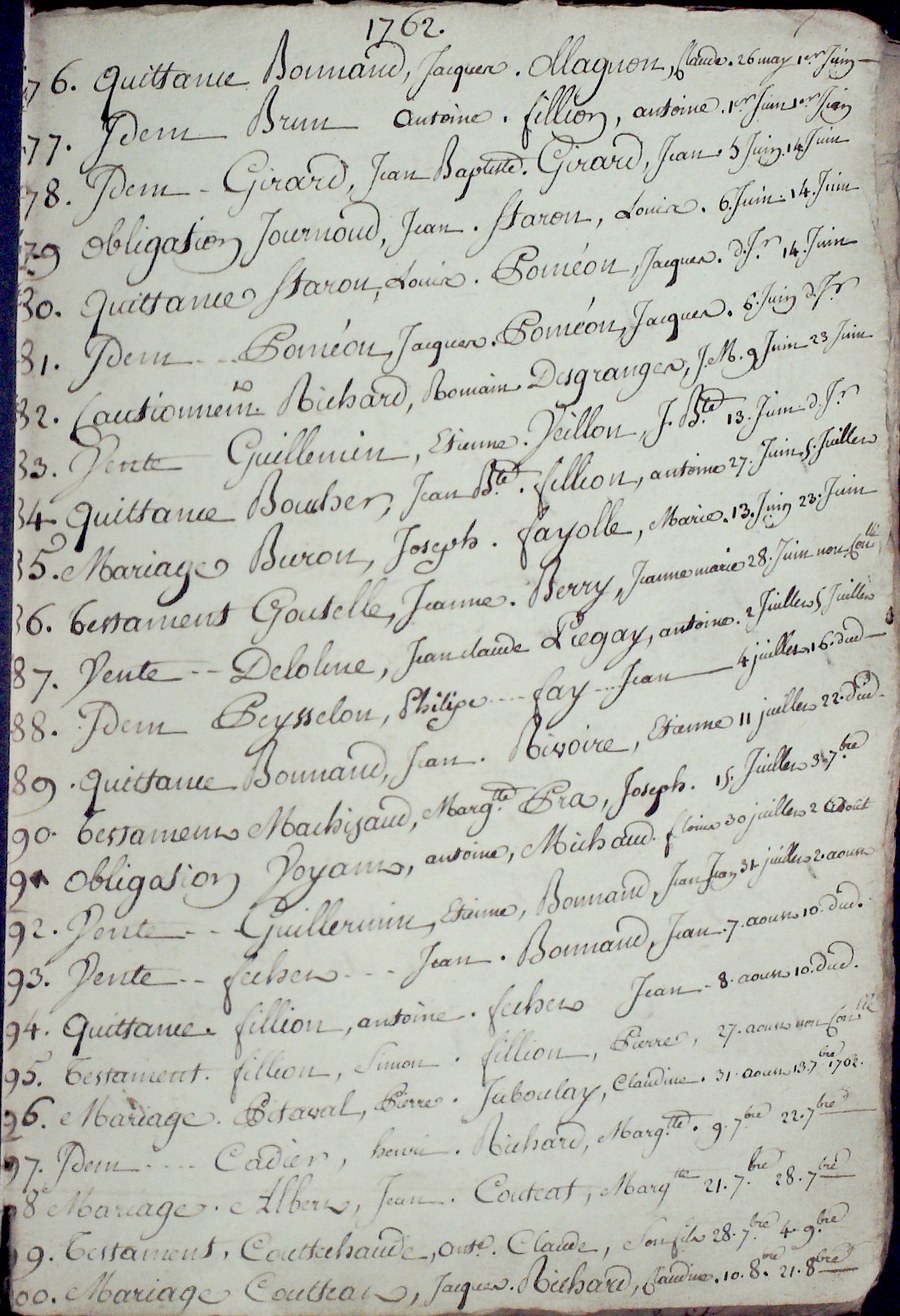 1762.
76. Quittance Bonnand, Jacques. Magnon, Claude. 26 may 1er Juin
77. Idem Brun antoine. fillion, antoine. 1er Juin 1er Juin
78. Idem - Girard, Jean Baptiste. Girard, Jean. 5 Juin. 14 Juin
79 Obligation Journoud, Jean. Staron, Louis. 6. Juin. 14. Juin
80. Quittance Staron, Louis. Poméon, Jacques. d. Jr 14. Juin
81. Idem -- Poméon, Jacques. Poméon, Jacques. 6. Juin d. Jr
82. Cautionnem Richard, Romain Desgranges, J. M. 9 Juin 23 Juin
83. Vente Guillemin, Etienne. Veillon, J. Bte 13. Juin d. Jr
84 Quittance Boucher, Jean Bte. fillion, antoine 27. Juin 5. Juillet
85. Mariage Buron, Joseph. fayolle, Marie. 13. Juin 23. Juin
86. testament Goutelle, Jeanne. Berry, Jeanne marie 28. Juin non Conllé
87. Vente -- Delolme, Jean claude Liegay, antoine. 2 Juillet 5 Juillet
88. Idem Peysselon, Philipe --- fay -- Jean 4 juillet 16. dud
89. quittance Bonnand, Jean. Rivoire, Etienne 11 juillet 22. dud.
90. testament Machizaud, Margtte. Pra, Joseph. 15. Juillet 3. 7bre
91 Obligation Voyant, antoine, Michaud. 30 juillet 2 Aout
92. Vente -- Guillermin, Etienne, Bonnand, Jean 31 juillet 2. aoust
93. Vente -- fecher --- Jean. Bonnand, Jean. 7. aoust 10. dud.
94. Quittance. fillion, antoine. fecher Jean - 8. aoust 10. dud.
95. testament. fillion, Simon. fillion, Pierre, 27. aoust non Conllé
96. Mariage. Pitaval, Pierre. Juboulay, Claudine. 31. aoust 13. 7bre 1762.
97. Idem ---- Cadier, henri. Richard, Margtte. 9. 7bre 22. 7bre
98 Mariage. Albert, Jean. Couteat, Margtte 21. 7bre 28. 7bre
99. testament. Coutechaude, ante. Claude, Son fils 28. 7bre 4. 9bre
00. Mariage Couttean, Jacques. Richard, Claudine. 10. 8bre. 21. 8bre